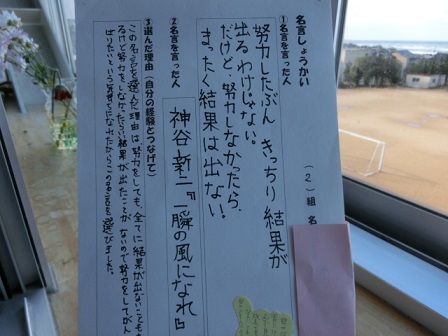 名言しょうかい
(２)組 名
①名言を言った人
努力したぶん きっちり 結果が
出るわけじゃない。
だけど、努力しなかったら、
まったく結果は出ない。
②名言を言った人
神谷新二『一瞬の風になれ』
③選んだ理由(自分の経験とつなげて)
この名言を選んだ理由は、努力をしても、全てに結果が出ないこともあ
るけど努力をしなかったらいい結果が出たことが ないので努力をしてがん
ばりたいという気持ちになれたからこの名言を選びました。